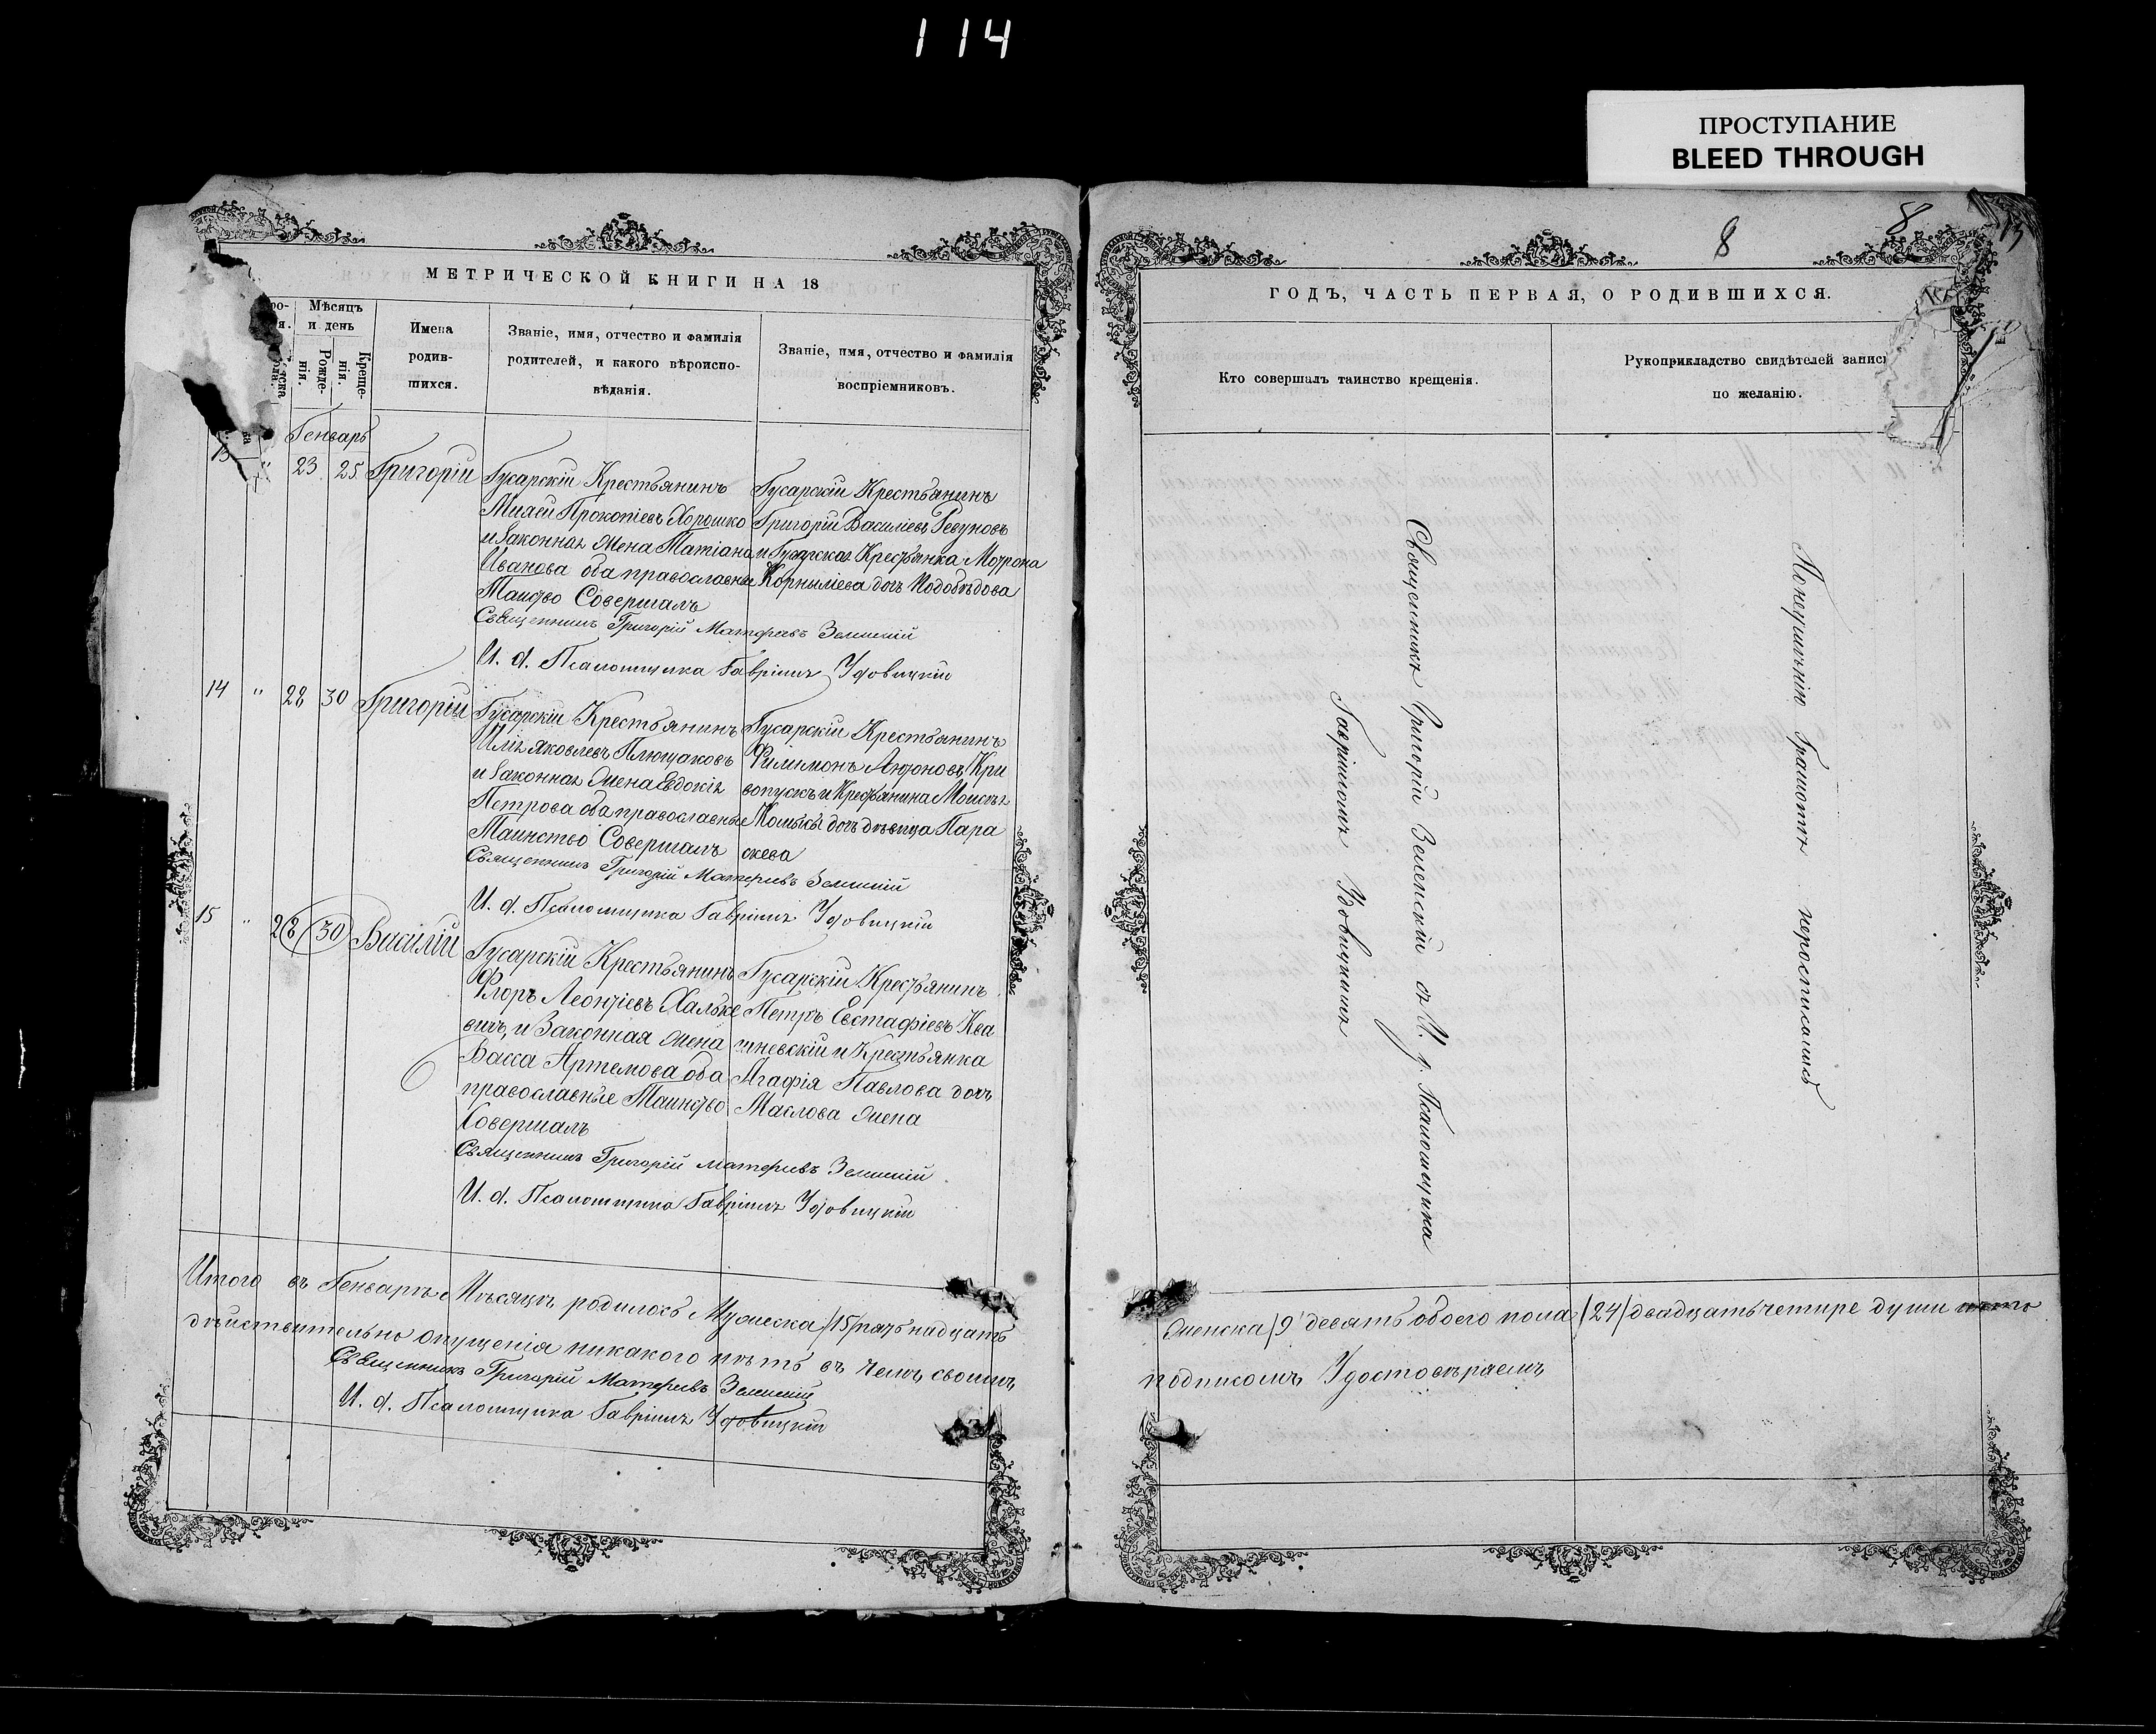 114
ПРОСТУПАНИЕ
BLEED THROUGH
8
8
МЕТРИЧЕСКОЙ КНИГИ НА 18
Мѣсяцъ
и день
Рожде-
нія.
Креще-
нія.
Имена
родив-
шихся.
Званіе, имя, отчество и фамилія
родителей, и какого вѣроиспо-
вѣданія.
Званіе, имя, отчество и фамилія
воспріемниковъ.
Генварь
13 " 23 25 Григорій
Гусарскій Крестьянинъ
Прокопіевъ Хорошко
и Законная Жена Татіана
Иванова оба православные
Таинство Совершалъ
Священникъ Григорій Матфеевъ Зеленскій
И. д. Псаломщика Гавріилъ Удовицкій
Гусарскій Крестьянинъ
Григорій Василіевъ Ревуновъ
и Гусарская Крестьянка Мотрона
Корниліева дочь Подобѣдова
14 " 28 30 Григорій
Гусарскій Крестьянинъ
Илія Яковлевъ Плющаковъ
и Законная Жена Евдокія
Петрова оба православные
Таинство Совершалъ
Священникъ Григорій Матфеевъ Зеленскій
И. д. Псаломщика Гавріилъ Удовицкій
Гусарскій Крестьянинъ
Филимонъ Антоновъ Кри
вопускъ и Крестьянина Моисея
дочь дѣвица Пара
скева
15 " 28 30 Василій
Гусарскій Крестьянинъ
Флоръ Леонтіевъ Хальке
вичъ, и Законная Жена
Васса Артемова оба
православные Таинство
Совершалъ
Священникъ Григорій Матфеевъ Зеленскій
И. д. Псаломщика Гавріилъ Удовицкій
Гусарскій Крестьянинъ
Петръ Евстафіевъ Ква
шневскій и Крестьянка
Агафія Павлова дочь
Маслова Жена
Итого въ Генварѣ Мѣсяцѣ родилось Мужеска /15/ пятьнадцать
дѣйствительно опущенія никакого нѣтъ въ чемъ своимъ
Священникъ Григорій Матфеевъ Зеленскій
И. д. Псаломщика Гавріилъ Удовицкій
ГОДЪ, ЧАСТЬ ПЕРВАЯ, О РОДИВШИХСЯ.
Кто совершалъ таинство крещенія.
Рукоприкладство свидѣтелей записи
по желанію.
Священникъ Григорій Зеленскій съ И. д. Псаломщика
Гавріиломъ Удовицкимъ
Понеумѣнію Грамотѣ неросписались
Женска /9 девять обоего пола /24/ двадцать четире души
подписомъ Удостовѣряемъ